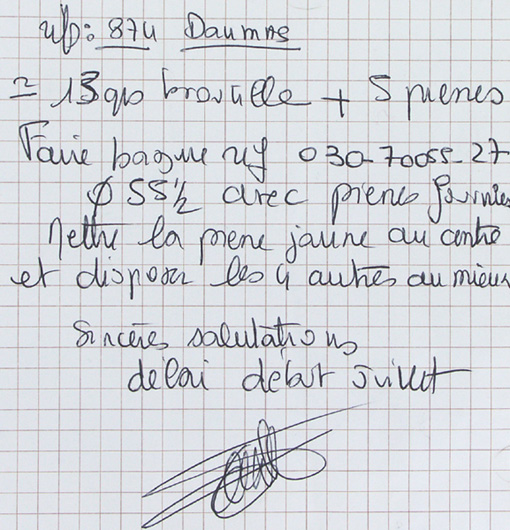 874 Daumas
= 13g40 brouille + 5 pierres
Faire bague 030-70055-27
Ø 55 1/2 avec pierres fournies
Mettre la pierre jaune au centre
et disposer les 4 autres au mieux
Sincères salutations
délai début juillet